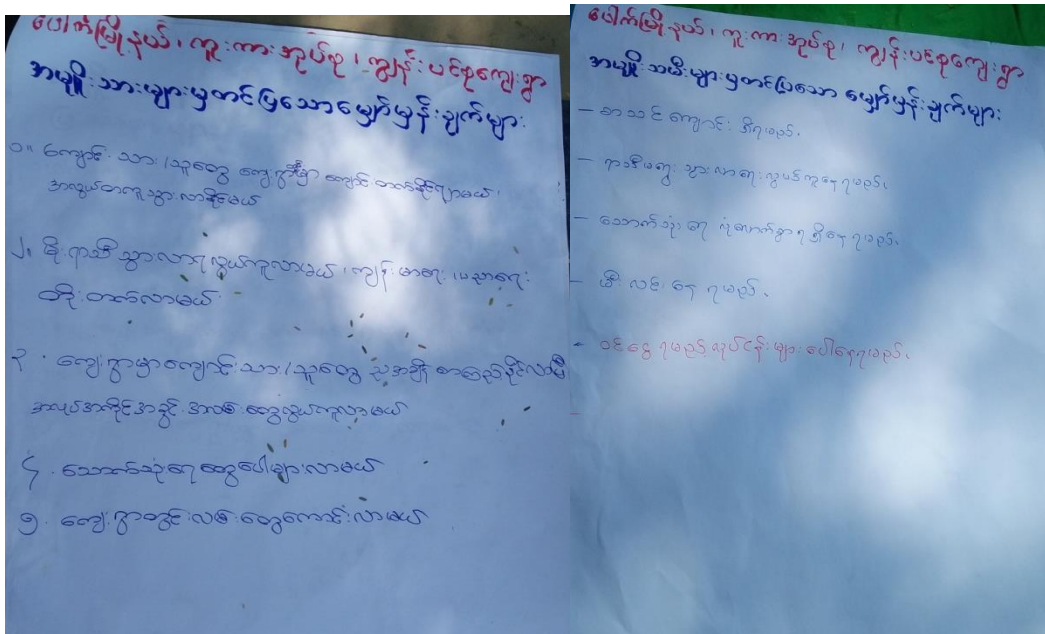 ပေါက်မြို့နယ်၊ ကူးကားအုပ်စု၊ ကျွန်းပင်စုကျေးရွာ
အမျိုးသားများမှတင်ပြသော မျှော်မှန်းချက်များ
၁။ ကျောင်းသား/သူတွေ ကျေးရွာမှာ ကျောင်းတက်နိုင်လာမယ်၊
အလွယ်တကူသွားလာနိုင်မယ်
၂။ မိုးရာသီသွားလာရလွယ်ကူလာမယ်၊ ကျန်းမာရေး၊ ပညာရေး
တိုးတက်လာမယ်
၃. ကျေးရွာမှာကျောင်းသား/သူတွေ ညအချိန် စာကြည့်နိုင်လာမယ်
အလုပ်အကိုင်အခွင့်အလမ်းတွေလွယ်ကူလာမယ်
၄. သောက်သုံးရေတွေပေါများလာမယ်
၅. ကျေးရွာတွင်းလမ်းတွေကောင်းလာမယ်
ပေါက်မြို့နယ်၊ ကူးကားအုပ်စု၊ ကျွန်းပင်စုကျေးရွာ
အမျိုးသမီးများမှတင်ပြသော မျှော်မှန်းချက်များ
- စာသင်ကျောင်း ရှိရမည်.
- ရာသီမရွေး သွားလာရေးလွယ်ကူနေရမည်.
- သောက်သုံးရေ လုံလောက်စွာရရှိနေရမည်.
- မီးလင်းနေရမည်.
- ဝင်ငွေရမည့်လုပ်ငန်းများပေါ်နေရမည်.